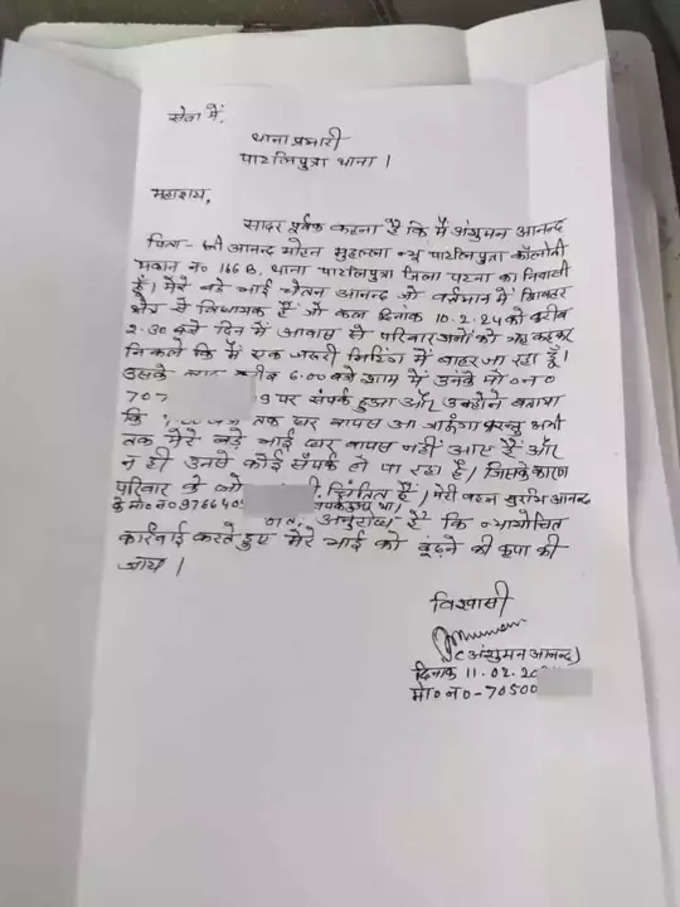 सेवा में,
थाना प्रभारी
पाटलिपुत्रा थाना।
महाशय,
सादर पूर्वक कहना है कि मैं अंशुमन आनन्द
पिता - श्री आनन्द मोहन मुहल्ला न्यू पाटलिपुत्रा कॉलोनी
मकान न० 166B, थाना पाटलिपुत्रा जिला पटना का निवासी
हूँ। मेरे बड़े भाई चेतन आनन्द जो वर्तमान में शिवहर
क्षेत्र से विधायक हैं जो कल दिनांक 10.2.24 को करीब
2.30 बजे दिन में आवास से परिवारजनों को यह कहकर
निकले कि मैं एक जरूरी मिटिंग में बाहर जा रहा हूँ।
उसके करीब 6.00 बजे शाम में उनके मो०न०
707 9 पर संपर्क हुआ और उन्होंने बताया
कि तक घर वापस आ जाऊंगा परन्तु अभी
तक मेरे बड़े भाई घर वापस नहीं आए हैं और
न ही उनसे कोई संपर्क हो पा रहा है। जिसके कारण
परिवार के चिंतित हैं। मेरी बहन सुरभि आनन्द
के मो०न० 9766405 संपर्क हुआ था।
अनुरोध है कि न्यायोचित
कार्रवाई करते हुए मेरे भाई को ढूंढ़ने की कृपा की
जाय।
विश्वासी
(अंशुमन आनन्द)
दिनांक 11.02.202
मो०न०-70500